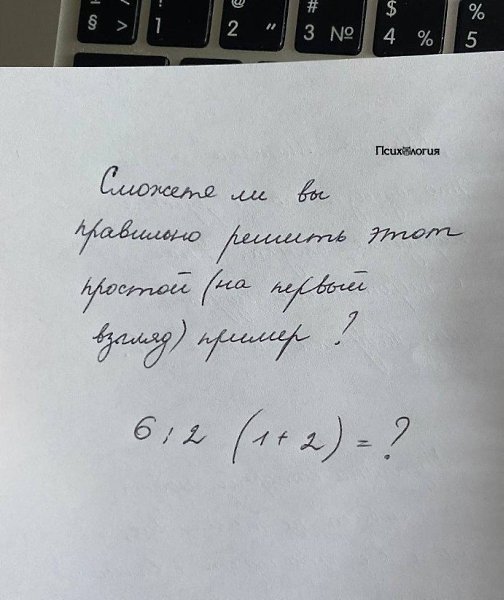 § >
!
1
@
2 "
#
3 №
$
4 %
%
5
Психология
Сможете ли вы
правильно решить этот
простой (на первый
взгляд) пример ?
6 : 2 (1 + 2) = ?